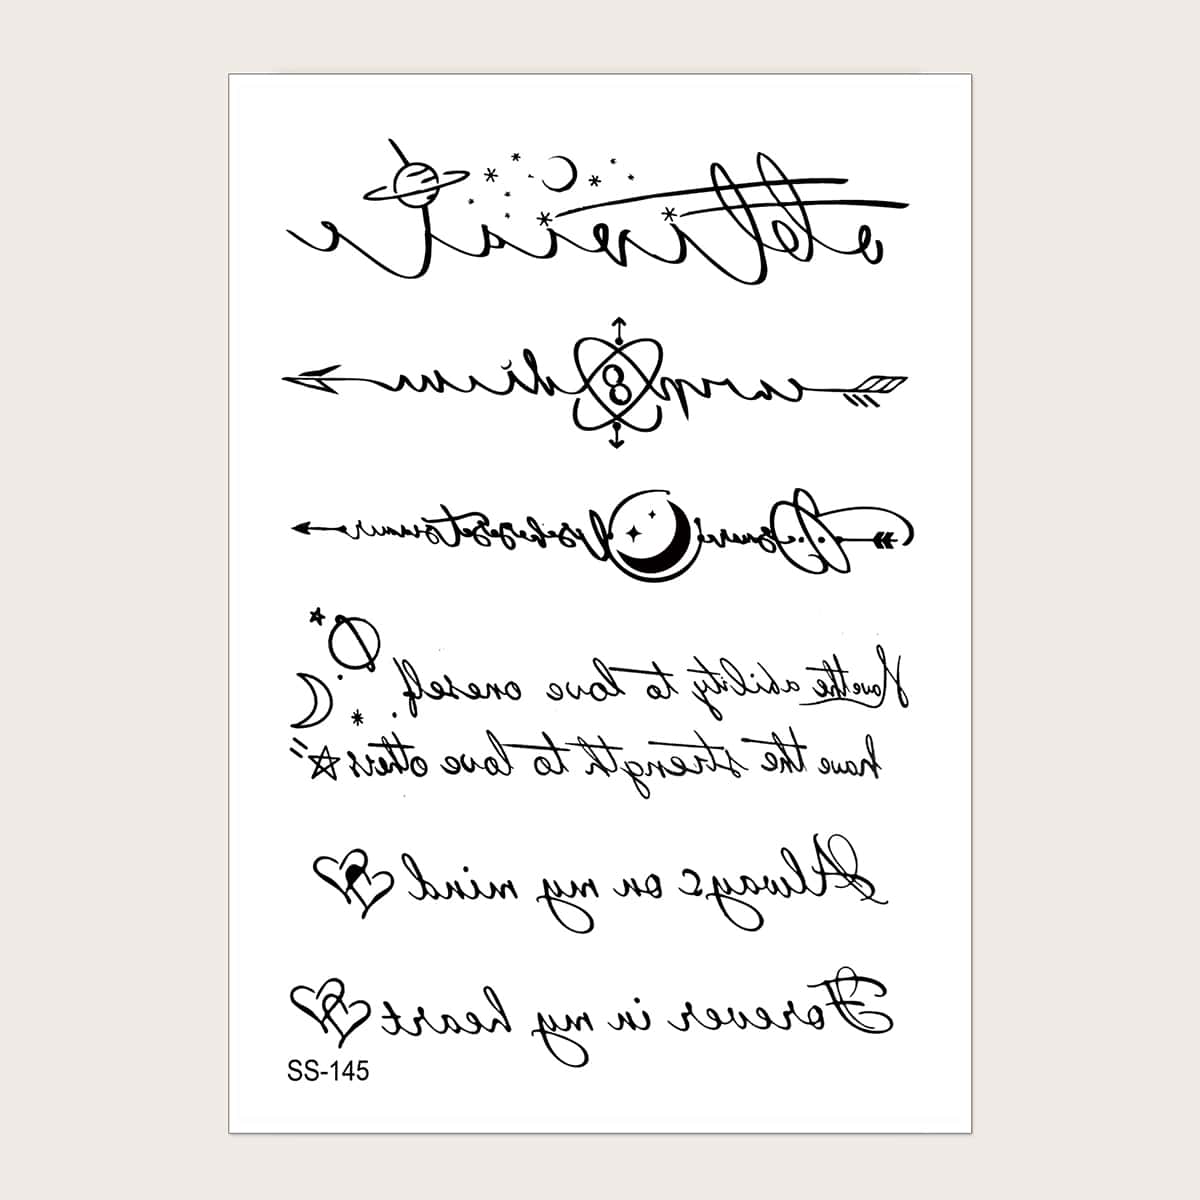 carpe diem
Have the ability to love oneself.
have the strength to love others
Always on my mind
Forever in my heart
SS-145